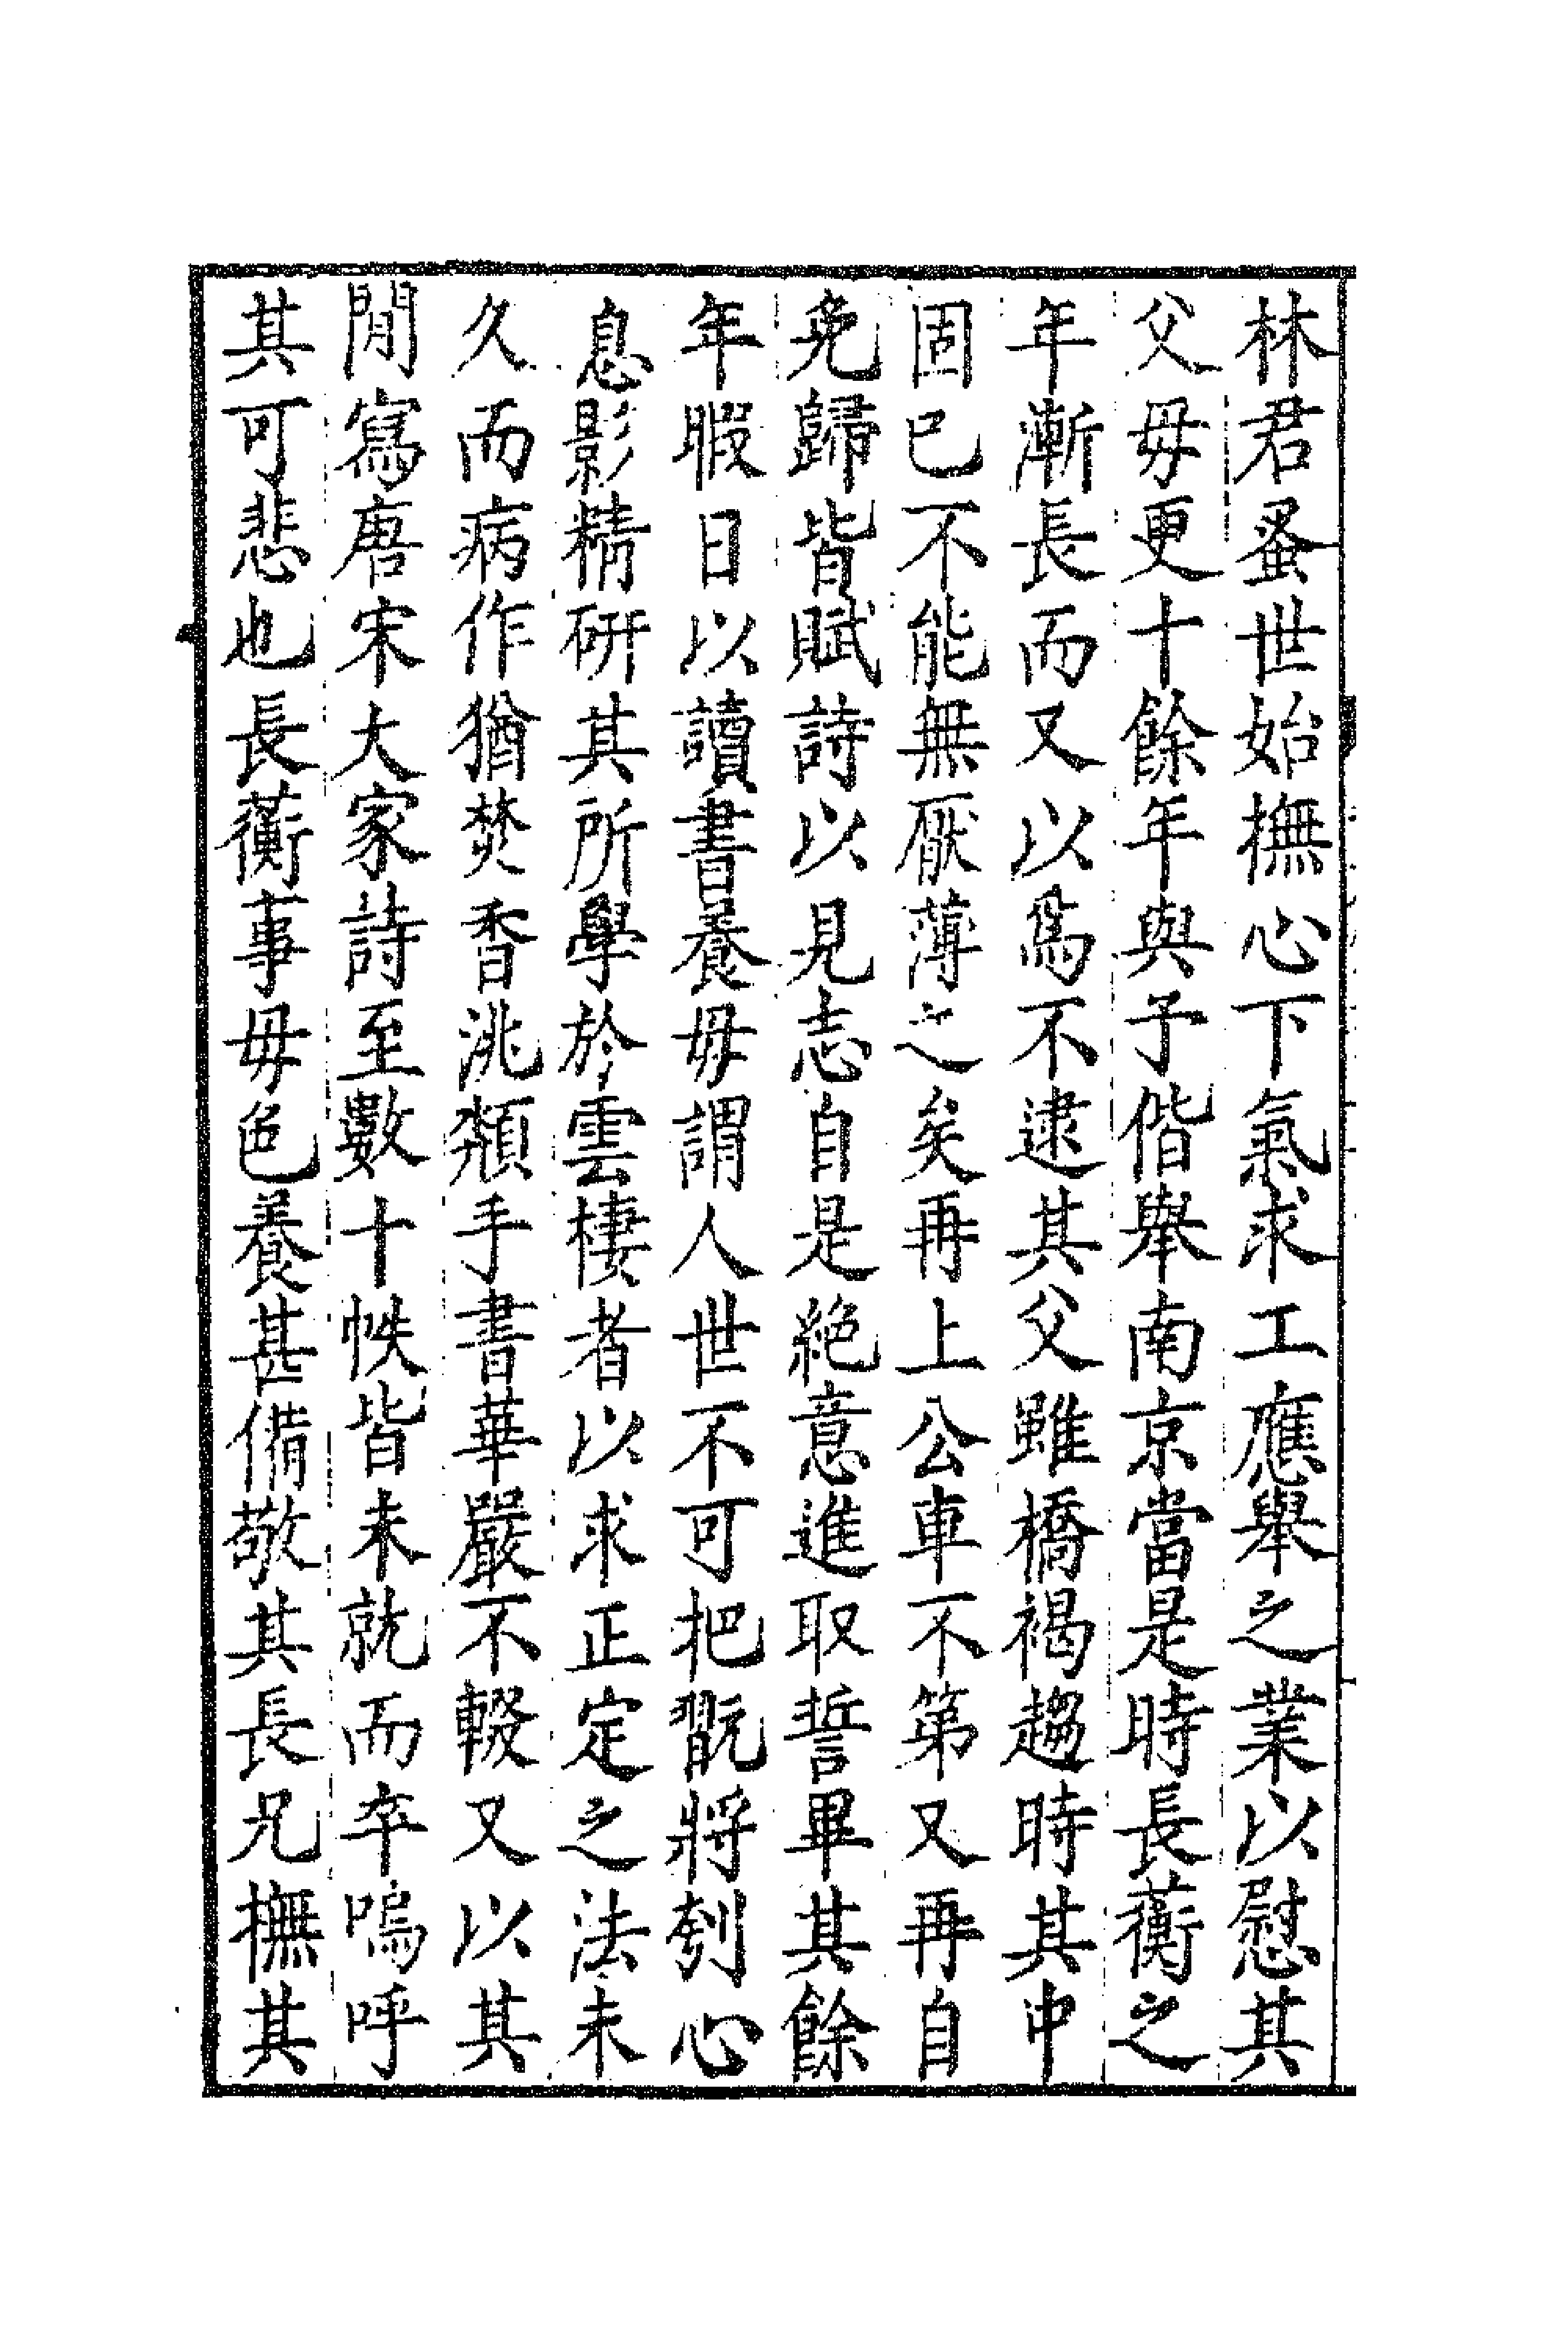 林君蚤世始撫心下氣求工應舉之業以慰其
父母更十餘年與予偕舉南京當是時長蘅之
年漸長而又以為不逮其父雖橋褐趨時其中
固已不能無厭薄之矣再上公車不第又再自
免歸皆賦詩以見志自是絶意進取誓畢其餘
年暇日以讀書養母謂人世不可把翫將刳心
息影精研其所學於雲棲者以求正定之法未
久而病作猶焚香洮頮手書華嚴不輟又以其
間寫唐宋大家詩至數十帙皆未就而卒嗚呼
其可悲也長蘅事母色養甚備敬其長兄撫其